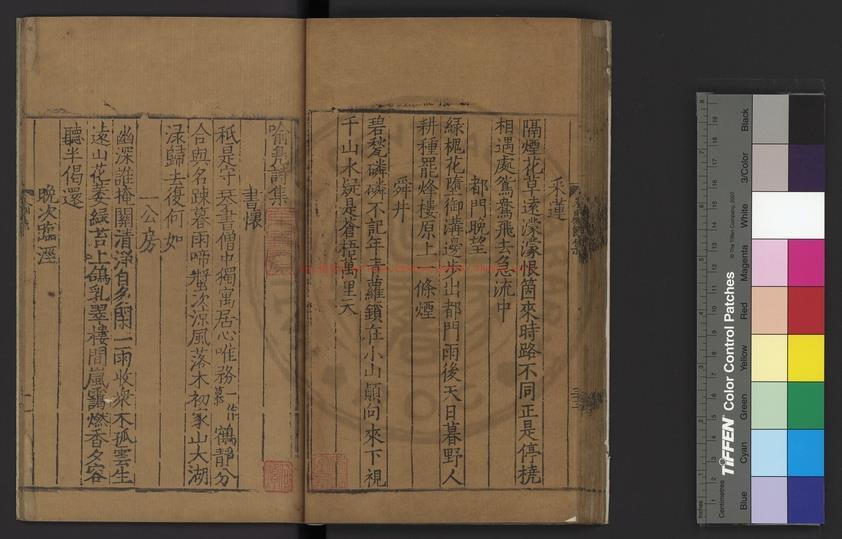 采蓮
隔煙花草遠濛濛恨箇來時路不同正是停橈
相遇處鴛鴦飛去急流中
都門晚望
綠槐花墮御溝邊步出都門雨後天日暮野人
耕種罷烽樓原上一條煙
舜井
碧甃磷磷不記年青蘿鎖在小山顛向來下視
千山水疑是蒼梧萬里天
喻鳧詩集
書懷
秪是守琴書僧中獨寓居心唯務一作慕鶴靜分
合與名疎暮雨啼螿次涼風落木初家山太湖
淥歸去復何如
一公房
幽深誰掩關清淨自多閒一雨收衆木孤雲生
遠山花萎綠苔上鴿乳翠樓間嵐靄燃香夕容
聽半偈還
晚次臨涇
TIFFEN Color Control Patches
© The Tiffen Company, 2007
Centimetres
Inches
Blue
Cyan
Green
Yellow
Red
Magenta
White
3/Color
Black